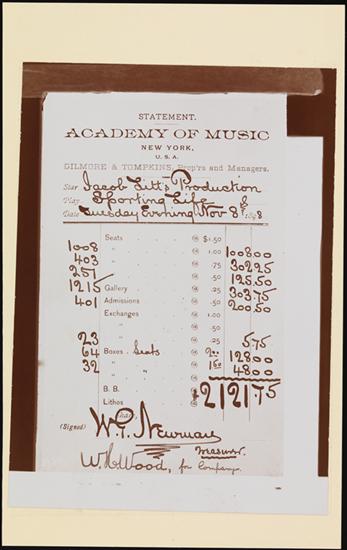 STATEMENT.
ACADEMY OF MUSIC
NEW YORK,
U. S. A.
GILMORE & TOMPKINS, Prop'rs and Managers.
Star Jacob Litt's Production
Play Sporting Life
Date Tuesday Evening Nov 8th 1898
Seats @ $1.50
1008 " @ 1.00 1008.00
403 " @ .75 302.25
251 " @ .50 125.50
1215 Gallery @ .25 303.75
401 Admissions @ .50 200.50
Exchanges @ 1.00
" @ .50
23 " @ .25 5.75
64 Boxes. Seats @ 2.00 128.00
32 " " @ 1.50 48.00
B. B. $2121.75
Lithos
(Signed) W. P. Newman
Treasurer.
W. H. Wood, for Company.